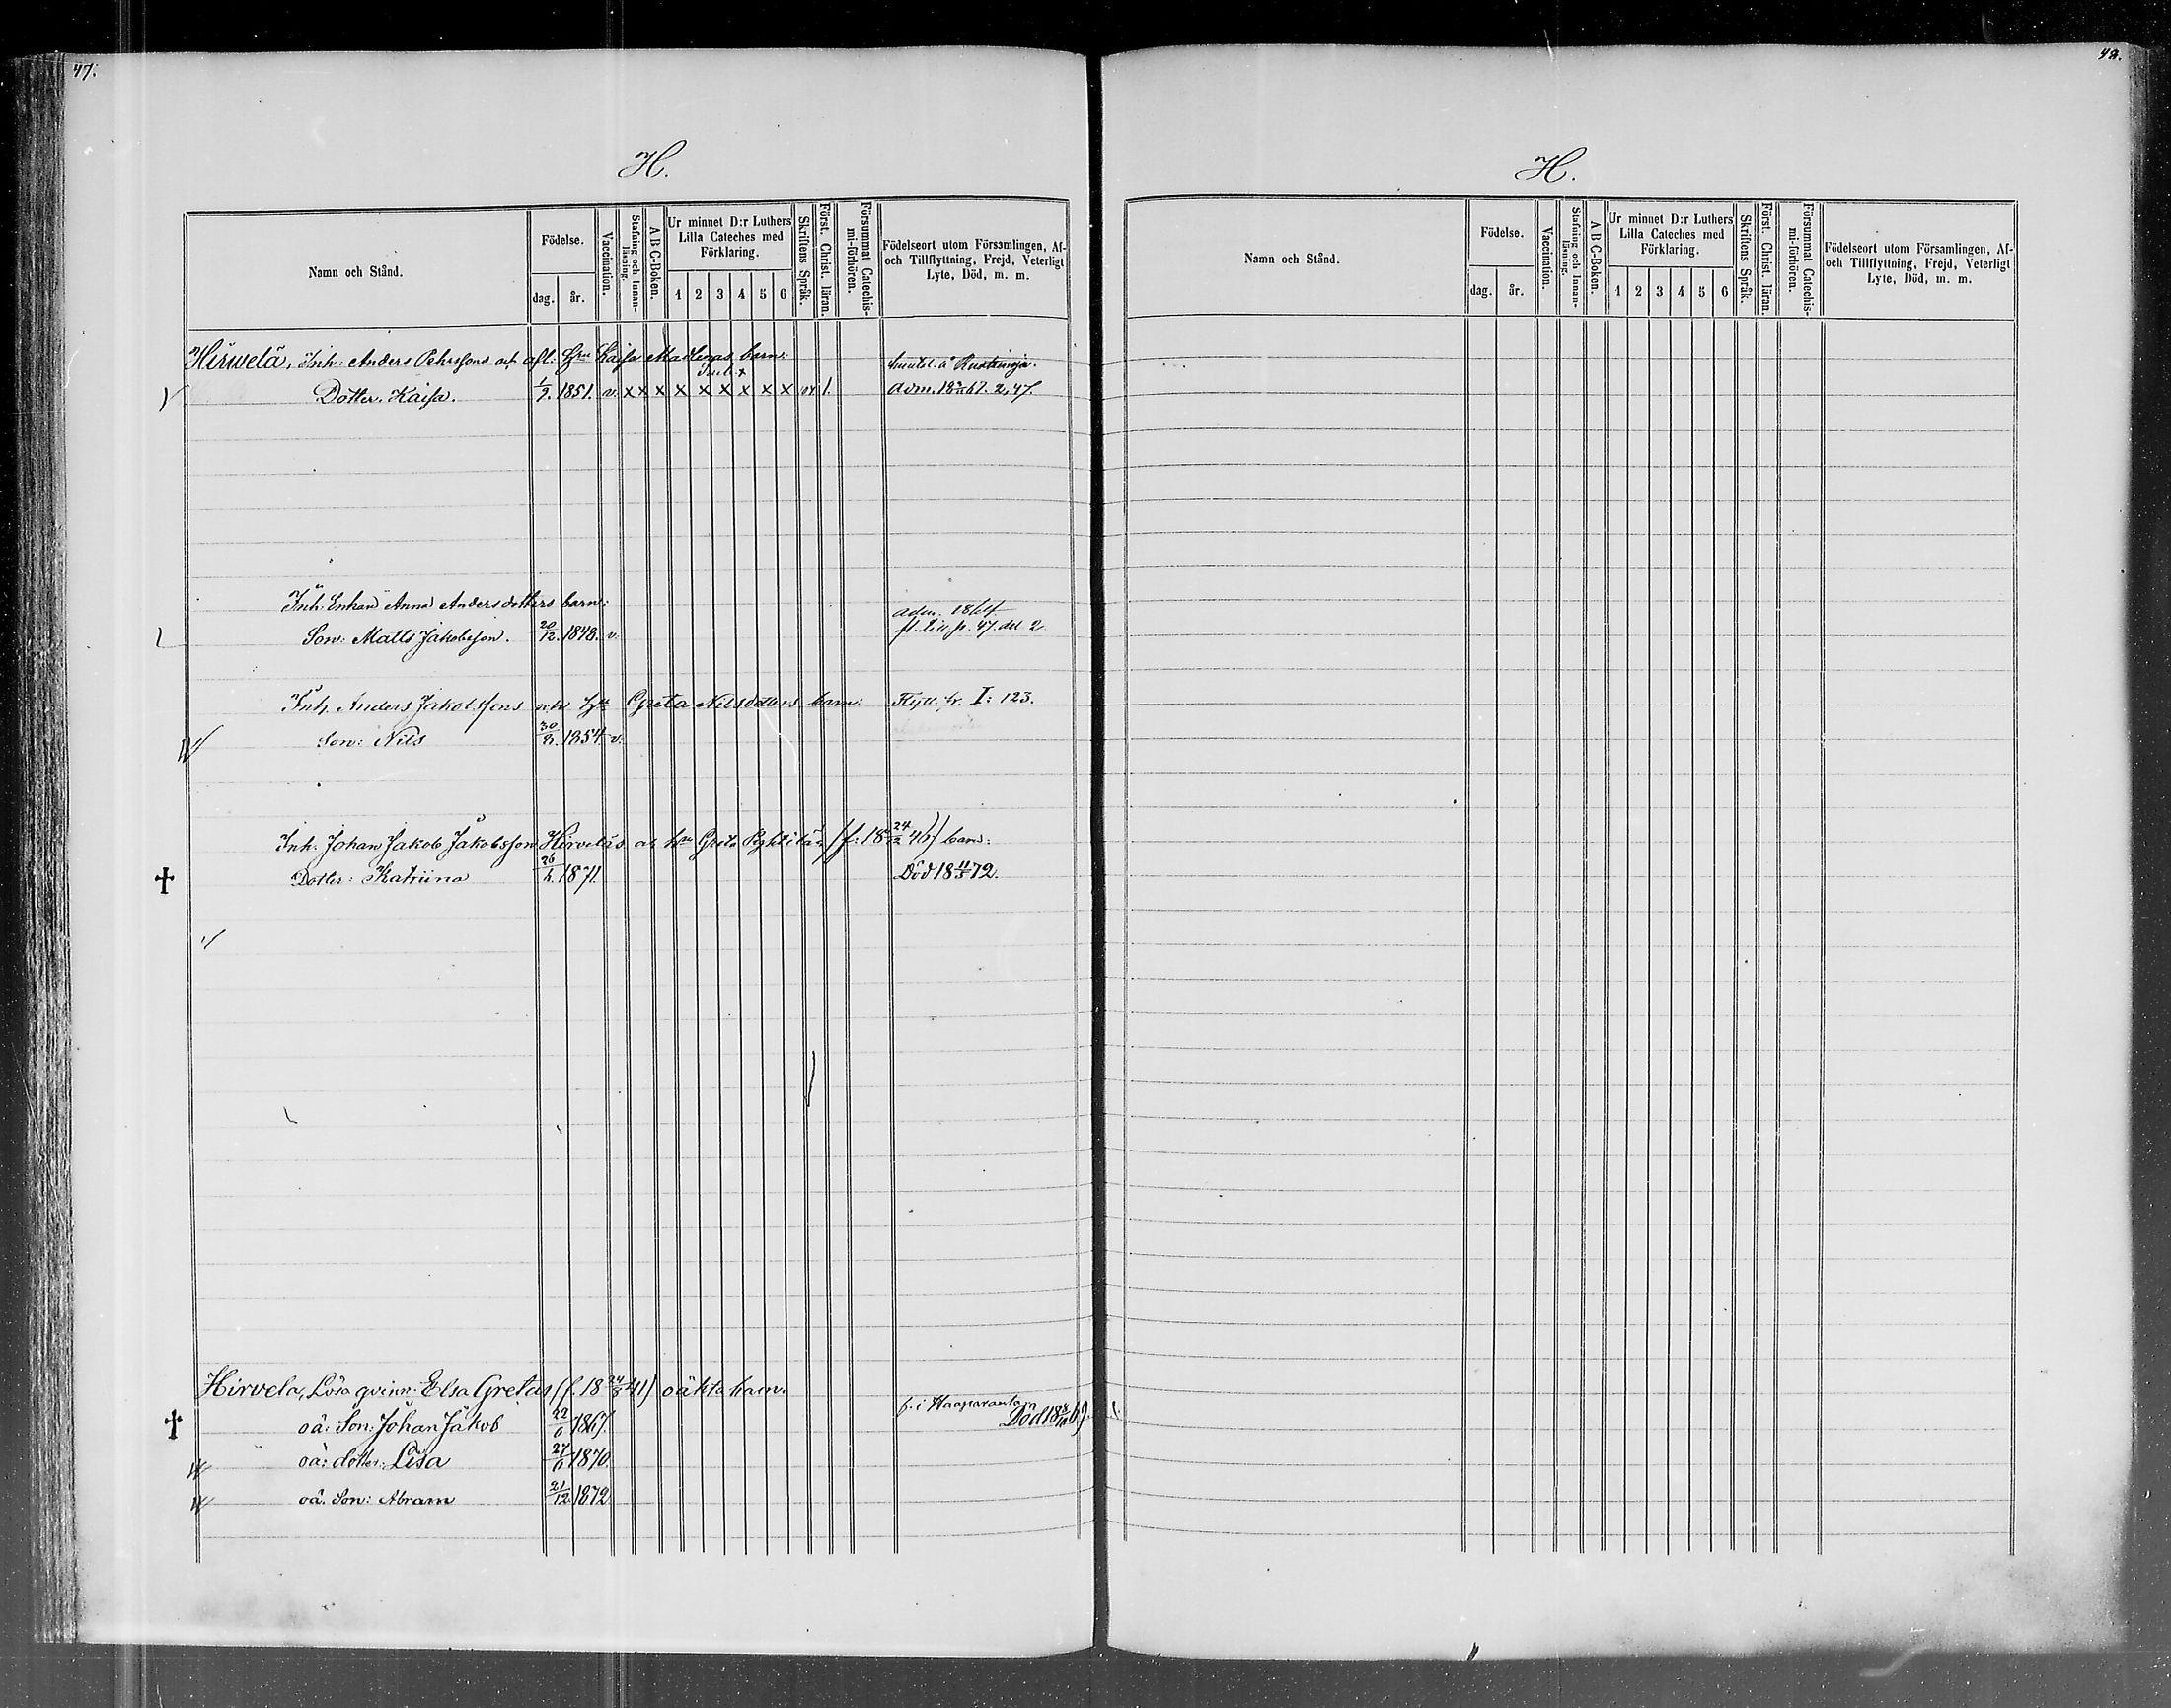 47.
H.
Namn och Stånd.
Födelse.
dag.
år.
Vaccination.
Stafning och Innan-
läsning.
A B C-Boken.
Ur minnet D:r Luthers
Lilla Cateches med
Förklaring.
1 2 3 4 5 6
Skriftens Språk.
Först. Christ. läran.
Försummat Catechis-
mi-förhören.
Födelseort utom Församlingen, Af-
och Tillflyttning, Frejd, Veterligt
Lyte, Död, m. m.
Hirwelä, Inh. Anders Pehrssons och afl. Hru Kaisa Madlenas barn:
Dotter. Kaisa. 1/9. 1851. v. x x x x x x x x x 1. adm. 18 67. 2, 47.
Inh. Enkan Anna Andersdotters barn: adm. 1864
Son: Matts Jakobsson. 20/12. 1848. v. fl. till p. 47. del 2
Inh. Anders Jakobssons och Hru Greta Nilsdotters barn: Flytt. fr. I: 123.
Son: Nils 1854 v.
Inh. Johan Jakob Jakobsson Hirveläs och hu Greta barn:
Dotter: Katriina 1871. Död 18 72.
Hirvela, Lösa qvinn. Elsa Gretas (f. 18 24/8 41) oäkta barn.
oä: Son: Johan Jakob 22/6 1867. f. i Haaparanta
Död 18 69.
oä: dotter: Lisa 27/6 1870.
oä. Son: Abram 21/12 1872
48.
H.
Namn och Stånd.
Födelse.
dag.
år.
Vaccination.
Stafning och Innan-
läsning.
A B C-Boken.
Ur minnet D:r Luthers
Lilla Cateches med
Förklaring.
1 2 3 4 5 6
Skriftens Språk.
Först. Christ. läran.
Försummat Catechis-
mi-förhören.
Födelseort utom Församlingen, Af-
och Tillflyttning, Frejd, Veterligt
Lyte, Död, m. m.